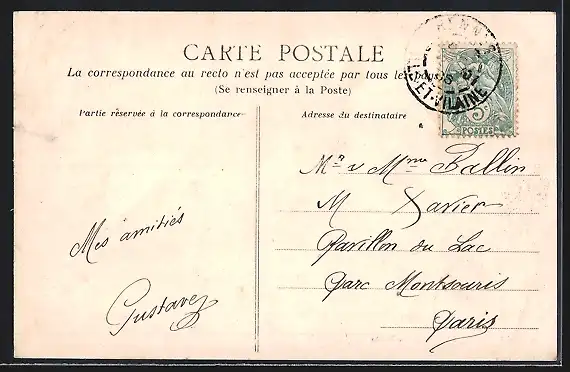 CARTE POSTALE
La correspondance au recto n'est pas acceptée par tous les pays
(Se renseigner à la Poste)
Partie réservée à la correspondance
Adresse du destinataire
ET-VILAINE
5
POSTES
Mr & Mme Ballin
M Xavier
Pavillon du Lac
Parc Montsouris
Paris
Mes amitiés
Gustave